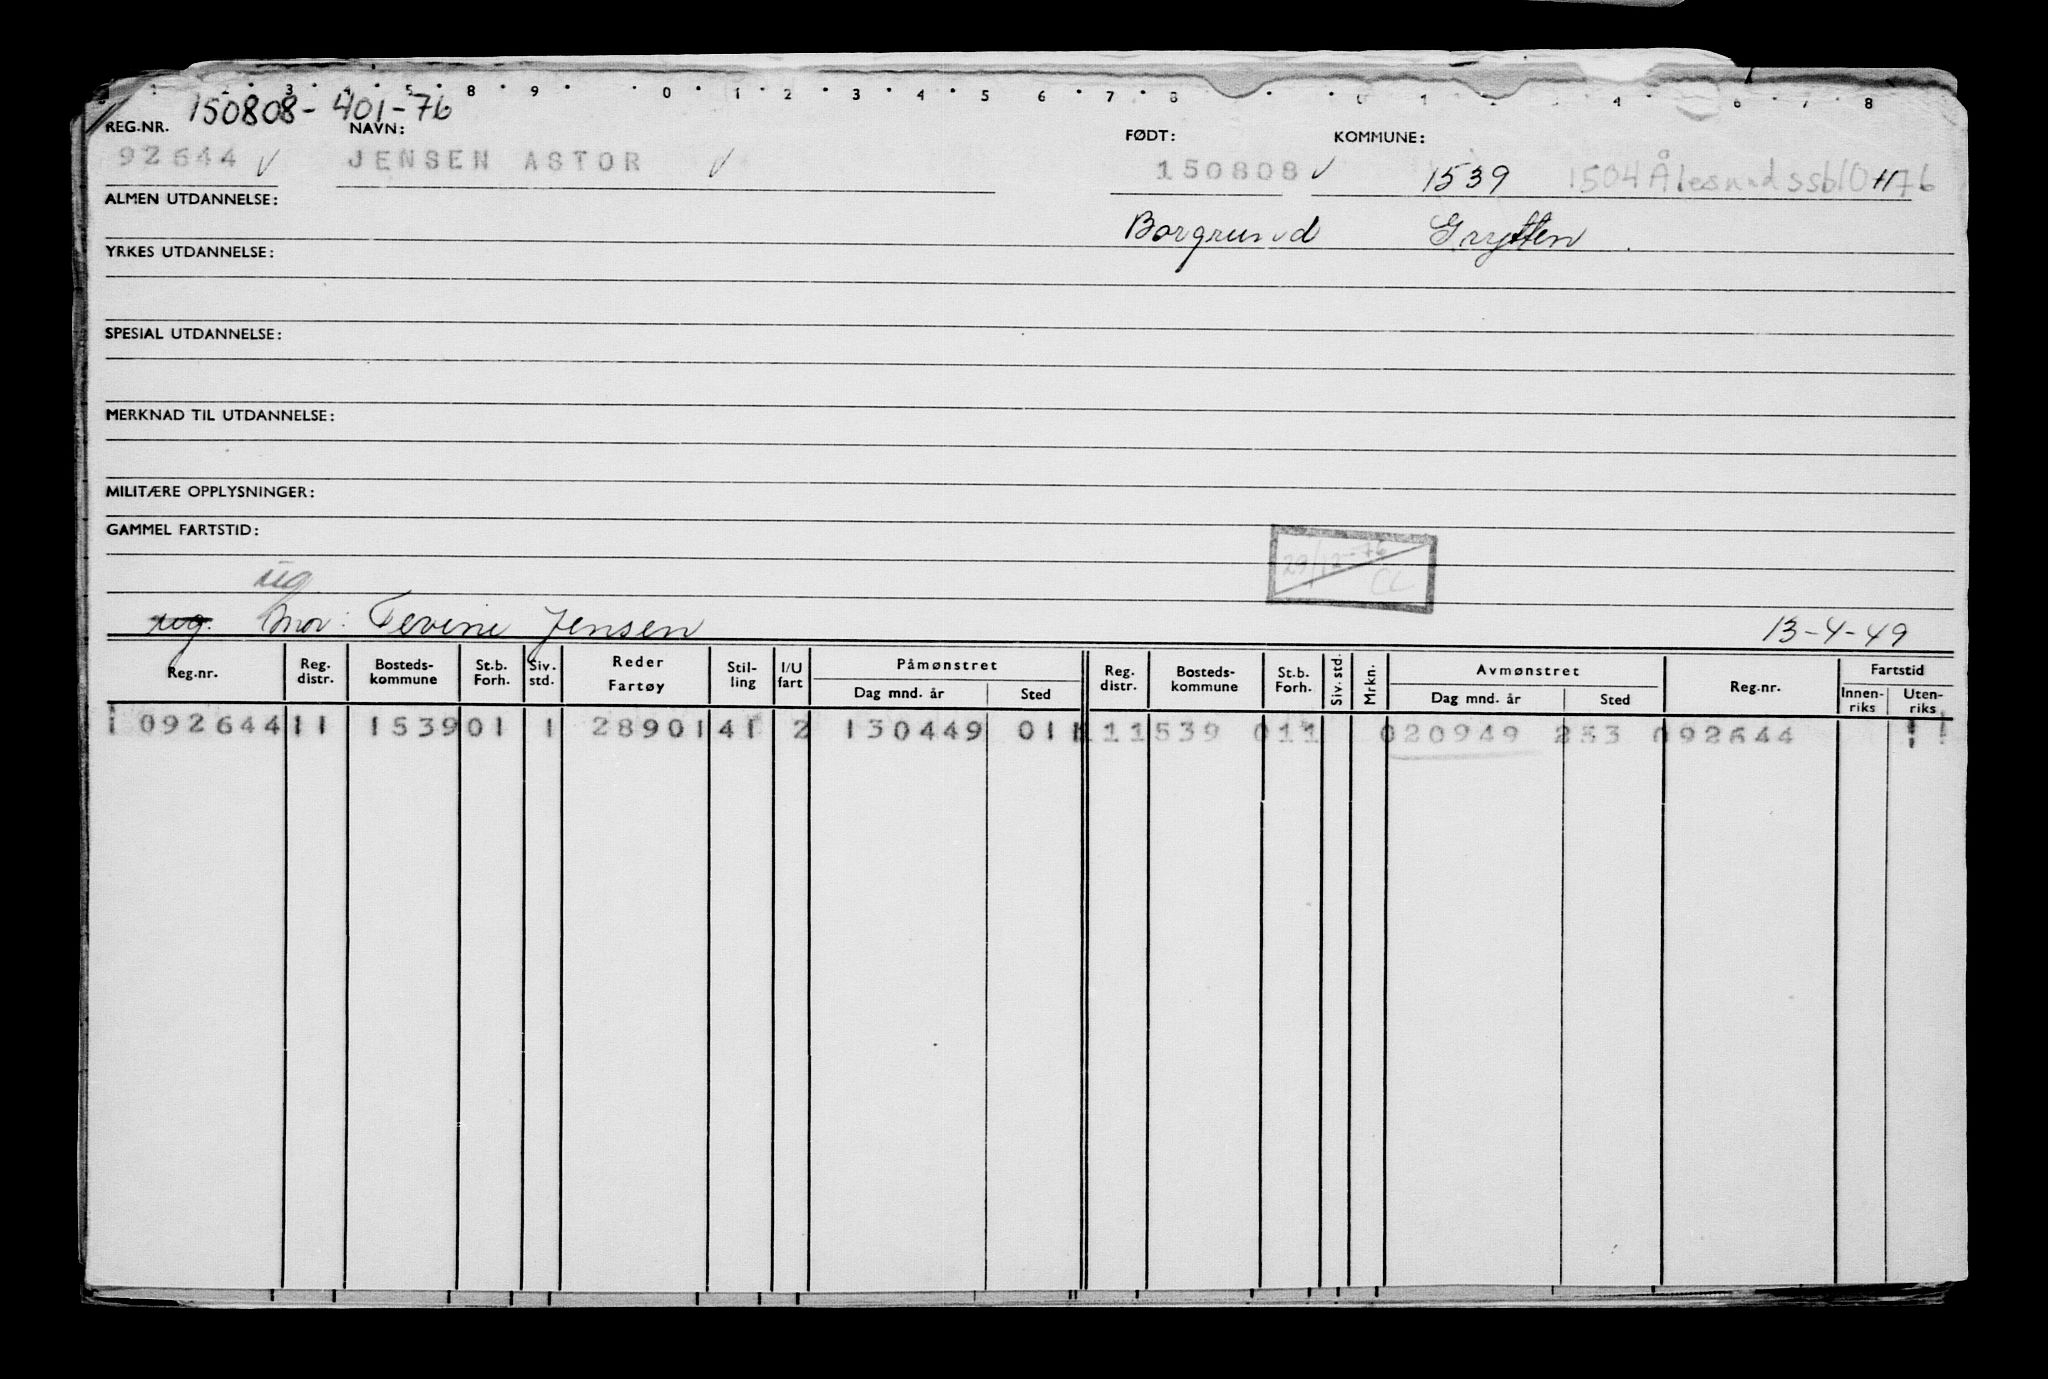 1 2 3 4 5 8 9 0 1 2 3 4 5 6 7 8 0 1 2 3 4 6 7 8
150808-401-76
REG.NR. NAVN: FØDT: KOMMUNE:
92644 JENSEN ASTOR 150808 1539 1504 Ålesund ssb10-1176
ALMEN UTDANNELSE: Borgrund Grytten
YRKES UTDANNELSE:
SPESIAL UTDANNELSE:
MERKNAD TIL UTDANNELSE:
MILITÆRE OPPLYSNINGER:
GAMMEL FARTSTID:
29/12-76
CL
ug
ug. Mor: Tevine Jensen 13-4-49
Reg.nr. Reg. distr. Bosteds-kommune St.b. Forh. Siv. std. Reder Fartøy Stil-ling I/U fart Påmønstret Dag mnd. år Sted Reg. distr. Bosteds-kommune St.b. Forh. Siv. std. Mrkn. Avmønstret Dag mnd. år Sted Reg.nr. Fartstid Innen-riks Uten-riks
1 092644 11 1539 01 1 28901 41 2 130449 011 11 1539 011 020949 253 092644